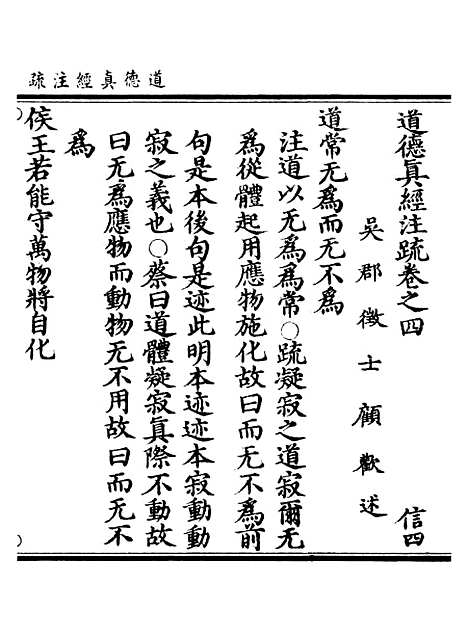 道德真經注疏
道德真經注疏卷之四 信四
吳郡徵士顧歡述
道常无為而无不為
注道以无為為常〇疏凝寂之道寂爾无
為從體起用應物施化故曰而无不為前
句是本後句是迹此明本迹迹本寂動動
寂之義也〇蔡曰道體凝寂真際不動故
曰无為應物而動物无不用故曰而无不
為
侯王若能守萬物將自化